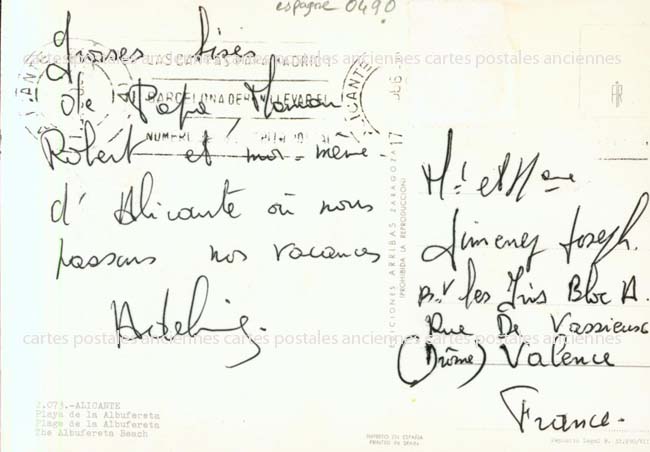 espagne 0490
Grosses bises
de Papa Maman
Robert et moi-même
d'Alicante où nous
passons nos vacances
M.r et Mme
Jimenez Joseph
les Iris Bloc A.
Rue De Vassieux
(Drôme) Valence
France.
EDICIONES ARRIBAS ZARAGOZA
(PROHIBIDA LA REPRODUCCION)
ALICANTE
17
cartes postales anciennes cartes postales anciennes cartes postales anciennes
cartes postales anciennes cartes postales anciennes cartes postales anciennes
2.073.-ALICANTE
Playa de la Albufereta
Plage de la Albufereta
The Albufereta Beach
IMPRESO EN ESPAÑA
PRINTED IN SPAIN